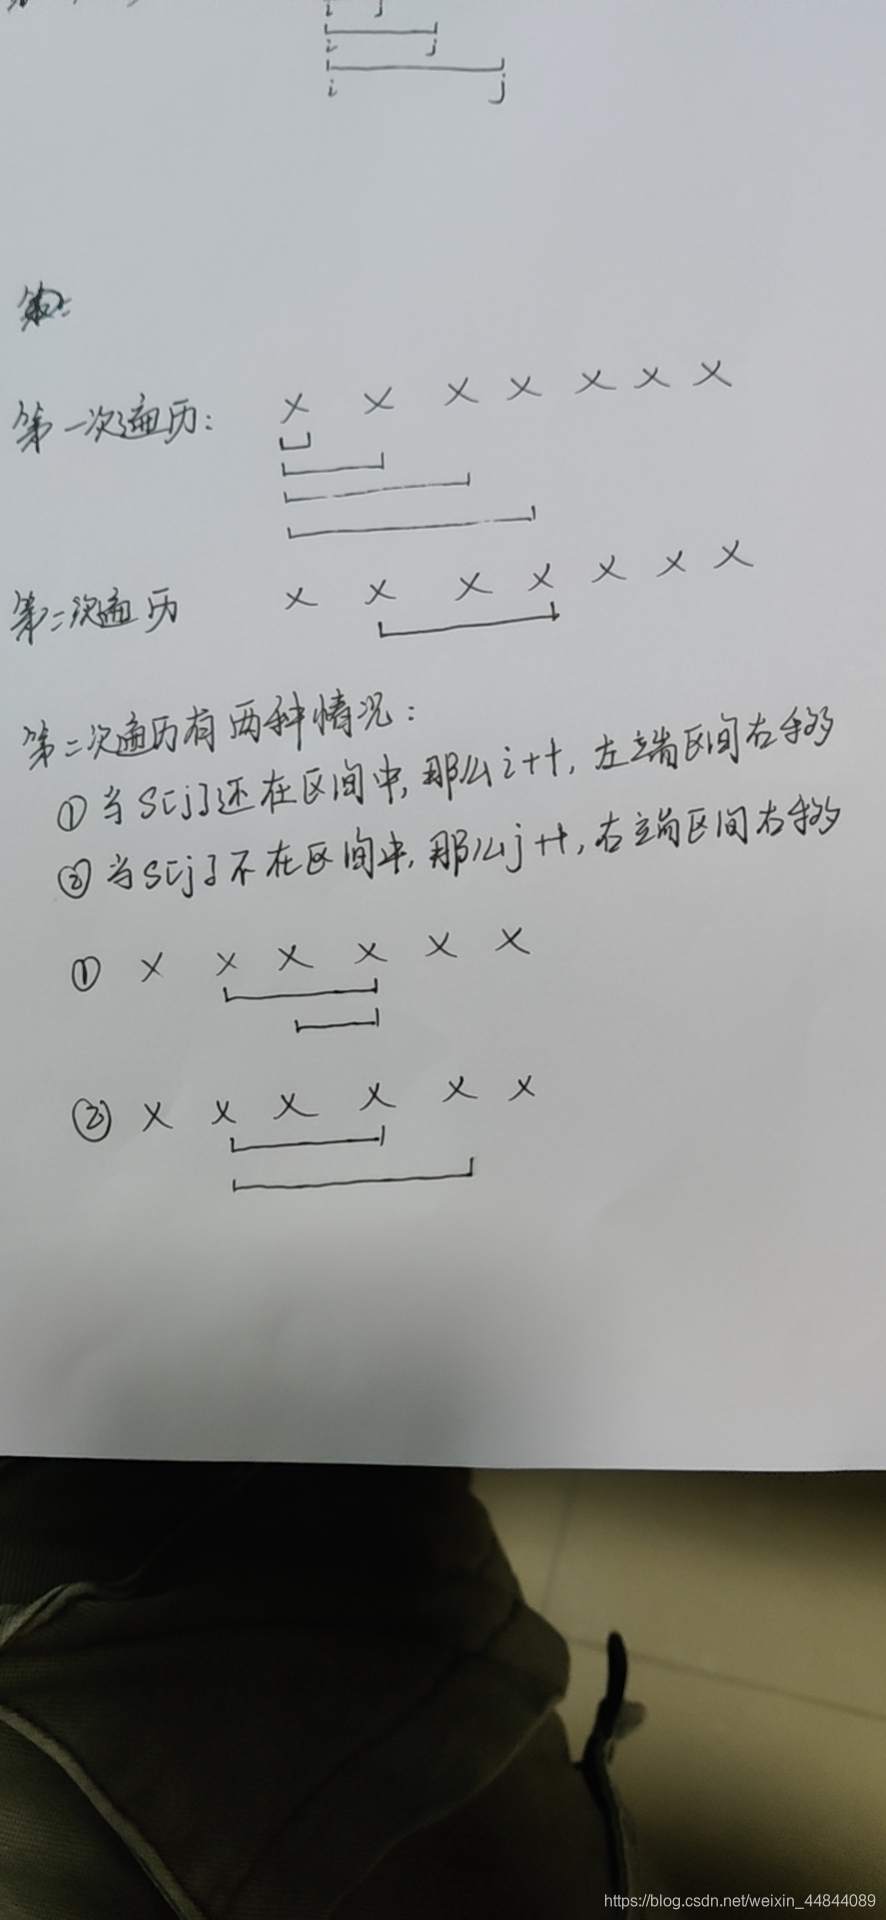 i j
i j
i j
第一次遍历: × × × × × × ×
第二次遍历 × × × × × × ×
第二次遍历有两种情况:
①当S[j]还在区间中,那么i++,左端区间右移
②当S[j]不在区间中,那么j++,右端区间右移
① × × × × × ×
② × × × × × ×
https://blog.csdn.net/weixin_44844089